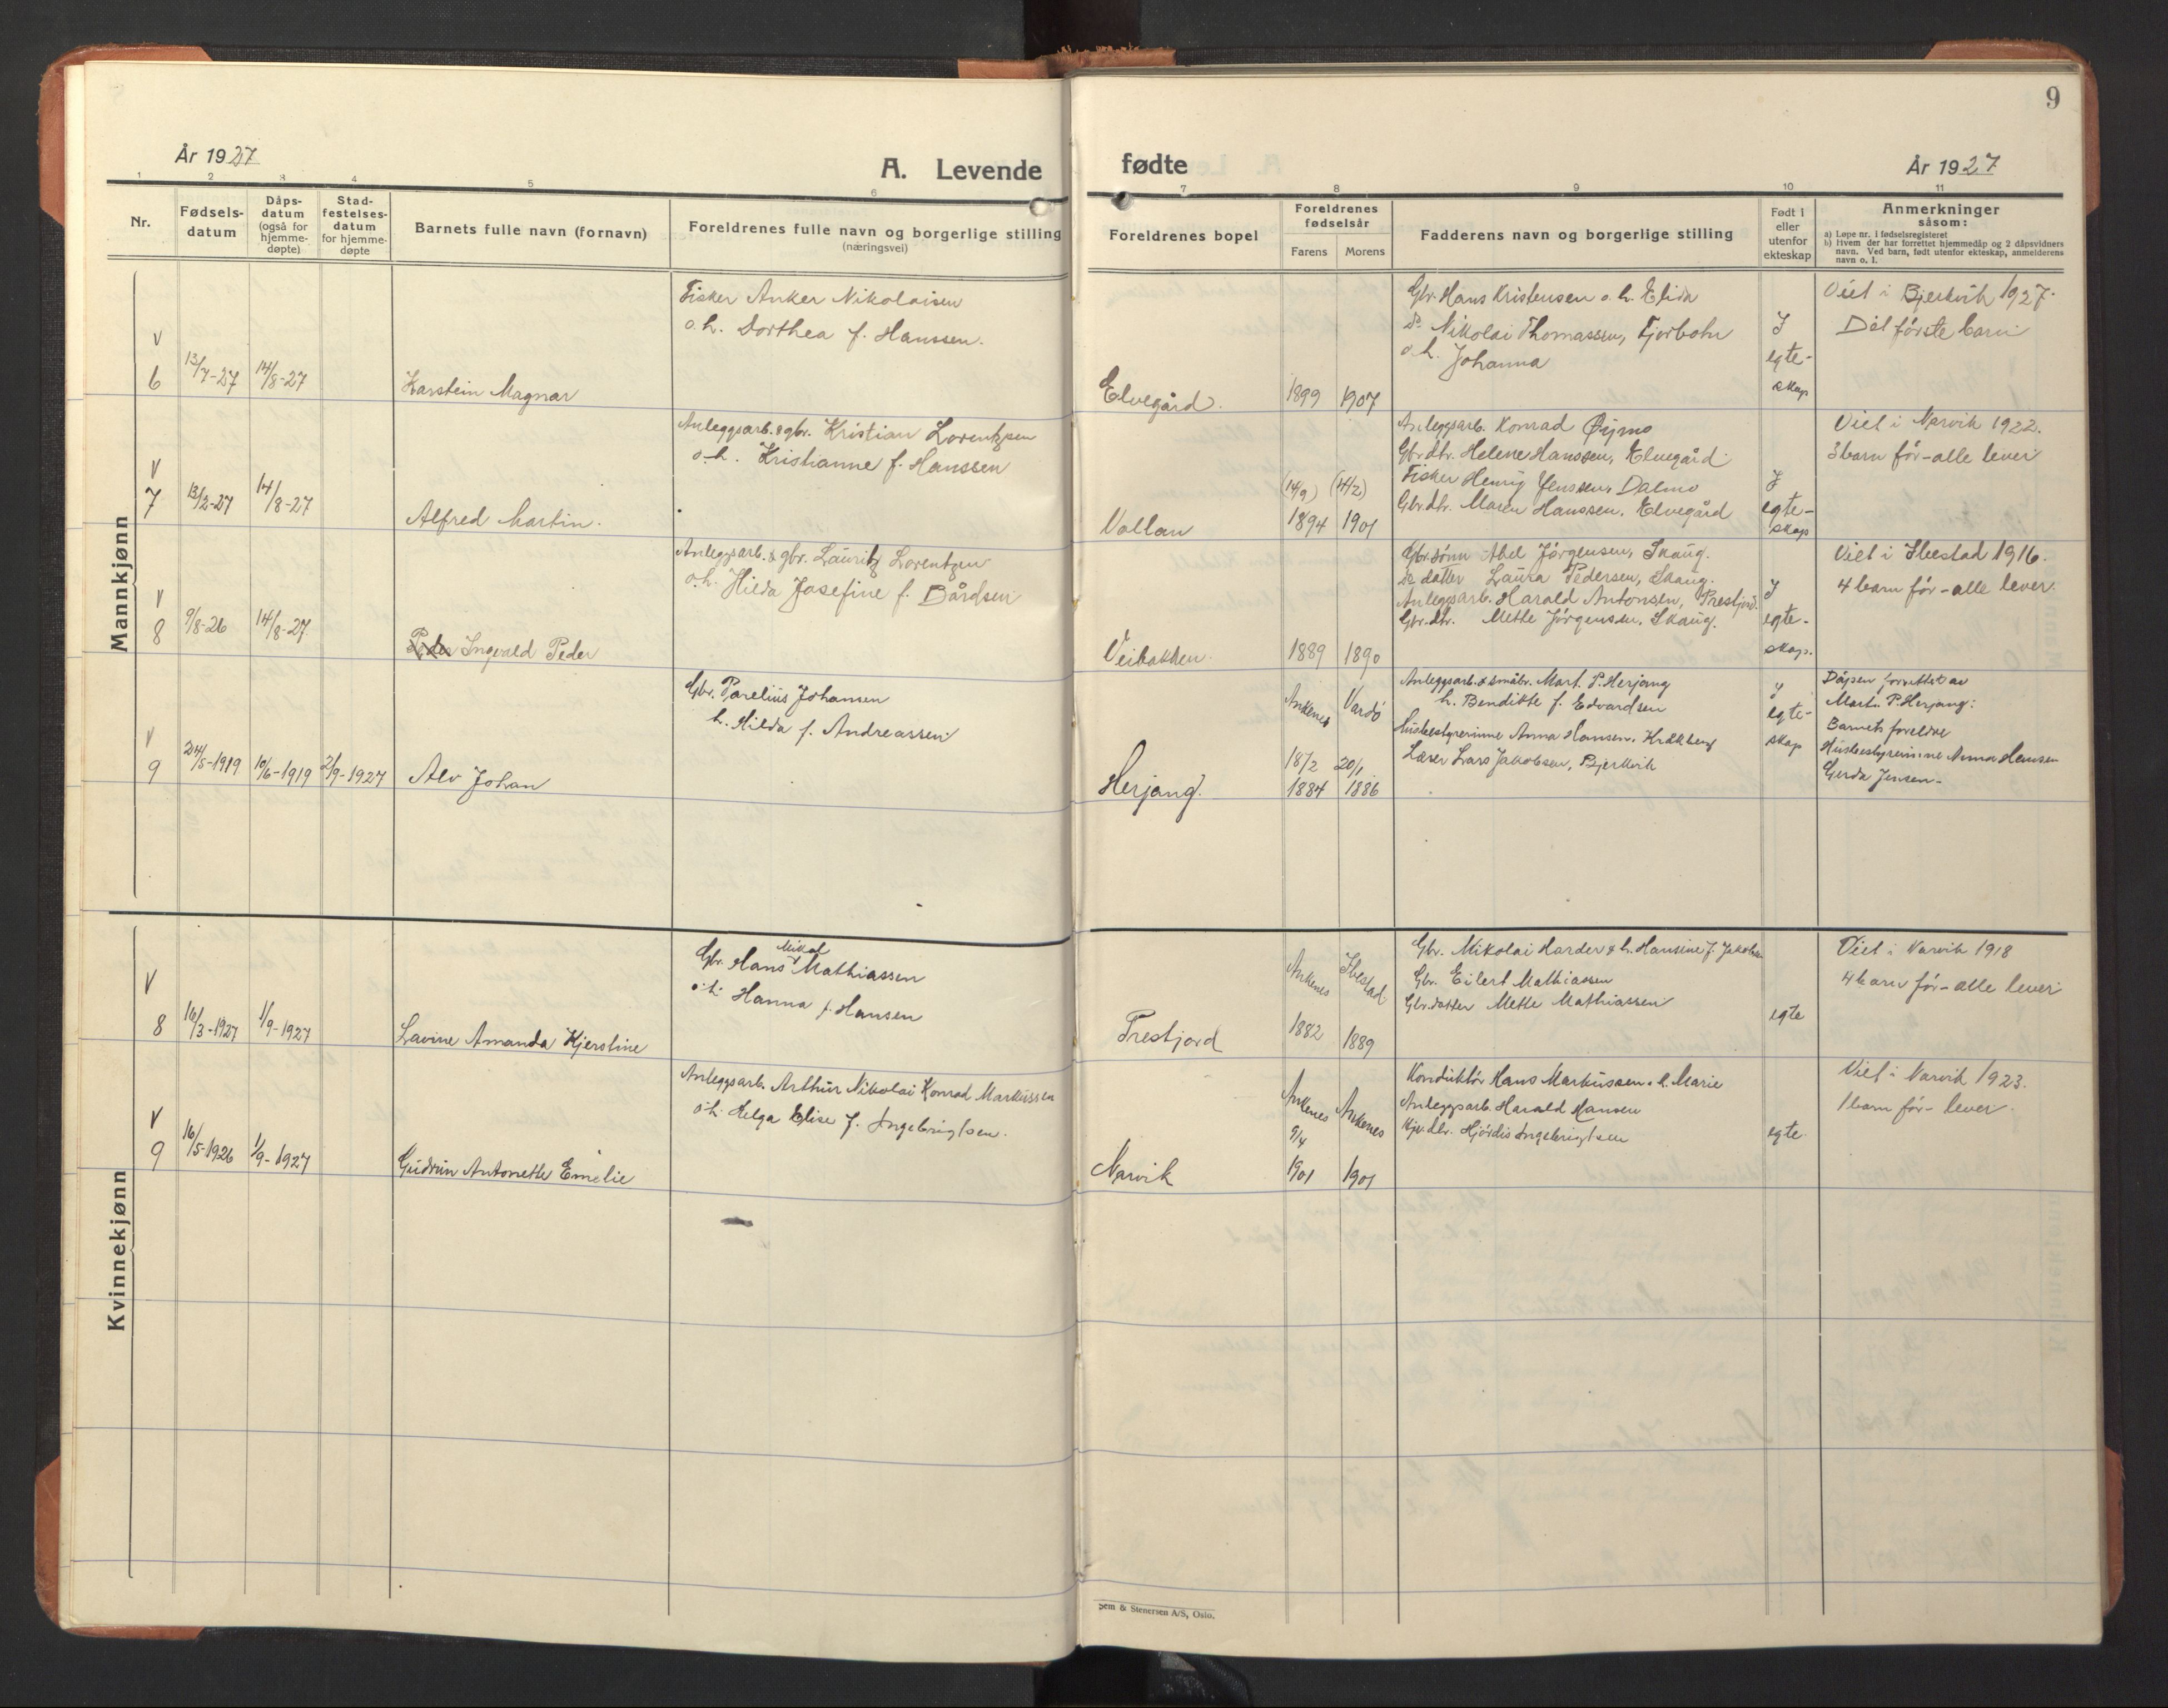 9
År 1927
A. Levende
fødte
År 1927
1 2 3 4 5 6 7 8 9 10 11
Nr.
Fødsels-
datum
Dåps-
datum
(også for
hjemme-
døpte)
Stad-
festelses-
datum
for hjemme-
døpte
Barnets fulle navn (fornavn)
Foreldrenes fulle navn og borgerlige stilling
(næringsvei)
Foreldrenes bopel
Foreldrenes
fødselsår
Farens Morens
Fadderens navn og borgerlige stilling
Født i
eller
utenfor
ekteskap
Anmerkninger
såsom:
a) Løpe nr. i fødselsregisteret
b) Hvem der har forrettet hjemmedåp og 2 dåpsvidners
navn. Ved barn, født utenfor ekteskap, anmelderens
navn o. l.
Mannkjønn
V
6
13/7-27
14/8-27
Karstein Magnar
Fisker Anker Nikolaisen
o. h. Dorthea f. Hanssen.
Elvegård.
1899 1907
Gbr. Hans Kristensen o. h. Elida
do. Nikolai Thomassen, Fjorbotn
o. h. Johanna
I
egte-
skap
Viet i Bjerkvik 1927.
Det første barn
V
7
13/2-27
14/8-27
Alfred Martin.
Anleggsarb. & gbr. Kristian Lorentzen
o. h. Kristianne f. Hanssen
Vollan
(14/9) (14/2)
1894 1901
Anleggsarb. Konrad Øijmo
Gbr.dtr. Helene Hanssen, Elvegård
Fisker Henrig Jenssen, Dalmo
Gbr.dtr. Maren Hanssen, Elvegård
I
egte-
skap
Viet i Narvik 1922.
3 barn før - alle lever
V
8
9/8-26
14/8-27
Peder Ingvald Peder
Anleggsarb. & gbr. Lauritz Lorentzen
o. h. Hilda Josefine f. Bårdsen
Veibakken.
1889 1890
Gbr.sønn Abel Jørgensen, Skaug.
do. datter Laura Pedersen, Skaug.
Anleggsarb. Harald Antonsen, Prestjord.
Gbr.dtr. Mette Jørgensen, Skaug.
I
egte-
skap.
Viet i Ibestad 1916.
4 barn før - alle lever.
V
9
24/5-1919
10/6-1919
2/9-1927
Alv Johan
Gbr. Parelius Johansen
h. Hilda f. Andreassen
Herjang.
Ankenes Vardø
18/2 20/1
1884 1886
Anleggsarb. & småbr. Mart. P. Herjang
h. Bendikte f. Edvardsen
Husbestyrerinne Anna Hansen, Kråkberg
Lærer Lars Jakobsen, Bjerkvik
I
egte-
skap
Dåpen forrettet av
Mart. P. Herjang:
Barnets foreldre
Husbestyrerinne Anna Hansen
Gerda Jensen -
Kvinnekjønn
V
8
16/3-1927
1/9-1927
Lavine Amanda Kjerstine
Mikal
Gbr. Hans Mathiassen
o. h. Hanna f. Hansen
Trestjord
Ankenes Ibestad
1882 1889
Gbr. Mikolai Harder & h. Hansine f. Jakobsen
Gbr. Eilert Mathiassen
Gbr.datter Mette Mathiassen
egte
Viet i Narvik 1918
4 barn før - alle lever
V
9
16/5-1926
1/9-1927
Gudrun Antonette Emelie
Anleggsarb. Arthur Nikolai Konrad Markussen
o. h. Helga Elise f. Ingebrigtsen.
Narvik
Ankenes Ankenes
9/4
1901 1901
Konduktør Hans Markussen o. h. Marie
Anleggsarb. Harald Hansen
Hjørdis Ingebrigtsen
egte.
Viet i Narvik 1923.
1 barn før - lever.
& Stenersen A/S, Oslo.